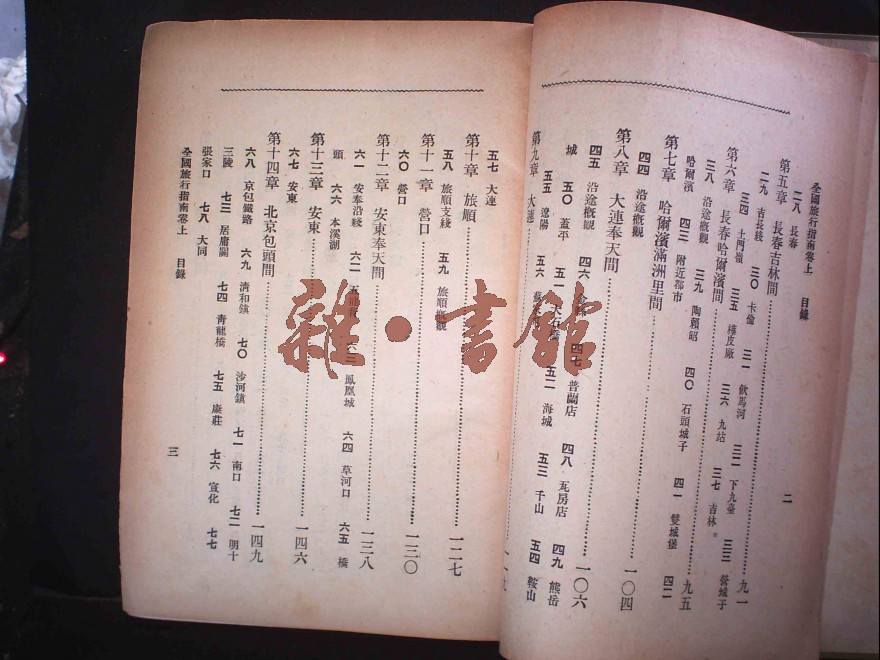 全國旅行指南卷上 目錄 二
二八 長春
第五章 長春吉林間……九一
二九 吉長綫 三〇 卡倫 三一 飲馬河 三二 下九臺 三三 營城子
三四 土門嶺 三五 樺皮廠 三六 九站 三七 吉林。
第六章 長春哈爾濱間……九五
三八 沿途概觀 三九 陶賴昭 四〇 石頭城子 四一 雙城堡 四二
哈爾濱 四三 附近都市
第七章 哈爾濱滿洲里間……一〇四
四四 沿途概觀
第八章 大連奉天間……一〇六
四五 沿途概觀 四六 四七 普蘭店 四八 瓦房店 四九 熊岳
城 五〇 蓋平 五一 大石橋 五二 海城 五三 千山 五四 鞍山
五五 遼陽 五六
第九章 大連……一一九
五七 大連
第十章 旅順……一二七
五八 旅順支綫 五九 旅順概觀
第十一章 營口……一三〇
六〇 營口
第十二章 安東奉天間……一三八
六一 安奉沿綫 六二 五 六三 鳳凰城 六四 草河口 六五 橋
頭 六六 本溪湖
第十三章 安東……一四六
六七 安東
第十四章 北京包頭間……一四九
六八 京包鐵路 六九 清和鎮 七〇 沙河鎮 七一 南口 七二 明十
三陵 七三 居庸關 七四 青龍橋 七五 康莊 七六 宣化 七七
張家口 七八 大同
全國旅行指南卷上 目錄 三
雜·書館